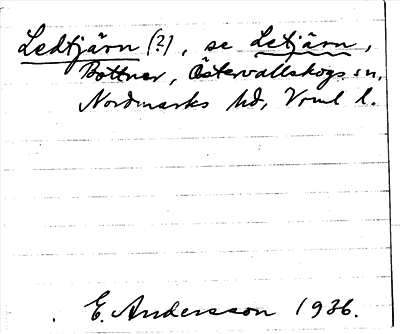 Ledtjärn (?), se Letjärn,
Bottnar, Östervallskogs sn,
Nordmarks hd, Vrml l.
E. Andersson 1936.